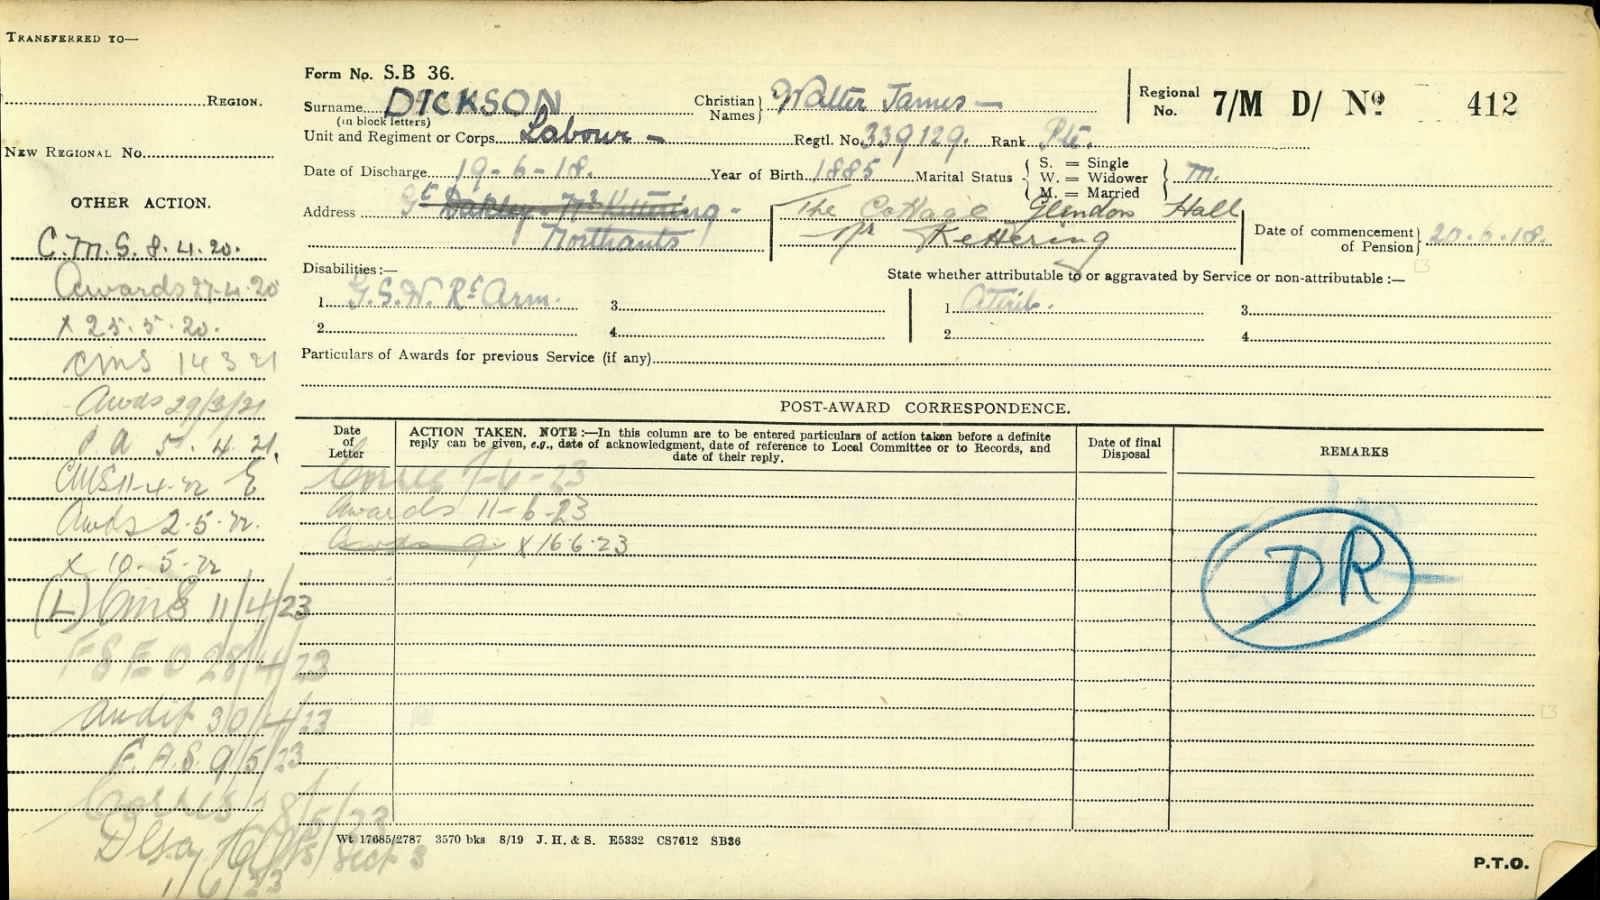 TRANSFERRED TO—
REGION.
NEW REGIONAL No.
OTHER ACTION.
C.M.S. 8.4.20.
Awards 27.4.20
X 25.5.20.
CMS 14 3 21
Awds 29/3/21
P.A 5.4.21.
CMS 11-4-22 E
Awds 2.5.22.
X 10.5.22
(L) CMS 11/4/23
FSEO 28/4/23
Audit 30/4/23
F.A.S. 9/5/23
18/5/23
Sect 3
1/6/23
Form No. S.B 36.
Surname DICKSON
(in block letters)
Christian Names} Walter James —
Regional No. 7/M D/ No 412
Unit and Regiment or Corps Labour — Regtl. No. 339129. Rank Pte.
Date of Discharge 19-6-18. Year of Birth 1885 Marital Status { S. = Single W. = Widower M. = Married } M.
Address Gt Oakley - Nr Kettering - The Cottage Glendon Hall
Northants nr Kettering
Date of commencement of Pension} 20.6.18.
Disabilities :—
State whether attributable to or aggravated by Service or non-attributable :—
1 G.S.W. Rt Arm. 3 1 Attrib. 3
2 4 2 4
Particulars of Awards for previous Service (if any)
POST-AWARD CORRESPONDENCE.
Date of Letter
ACTION TAKEN. NOTE :—In this column are to be entered particulars of action taken before a definite
reply can be given, e.g., date of acknowledgment, date of reference to Local Committee or to Records, and
date of their reply.
Date of final Disposal
REMARKS
7-6-23
Awards 11-6-23
X 16.6.23
DR
Wt 17685/2787 3570 bks 8/19 J. H. & S. E5332 CS7612 SB36
P.T.O.